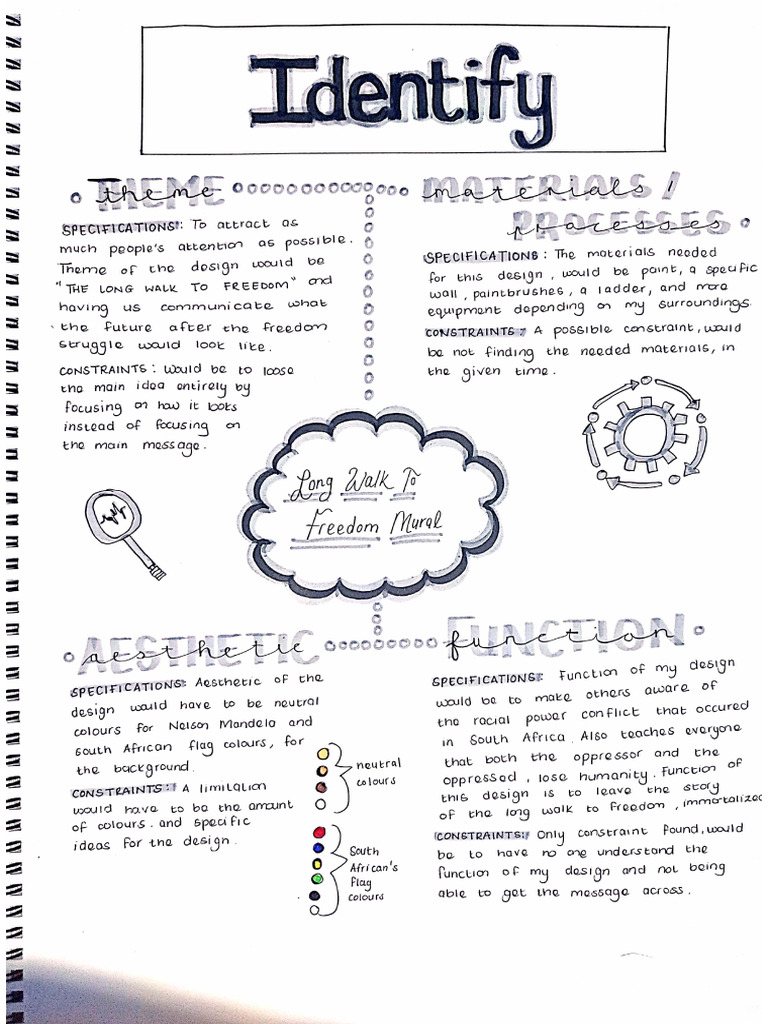 Identify
theme
SPECIFICATIONS: To attract as
much people's attention as possible.
Theme of the design would be
"THE LONG WALK TO FREEDOM" and
having us communicate what
the future after the freedom
struggle would look like.
CONSTRAINTS: Would be to loose
the main idea entirely by
focusing on how it looks
instead of focusing on
the main message.
materials /
processes
SPECIFICATIONS: The materials needed
for this design, would be paint, a specific
wall, paintbrushes, a ladder, and more
equipment depending on my surroundings.
CONSTRAINTS: A possible constraint, would
be not finding the needed materials, in
the given time.
Long Walk To
Freedom Mural
aesthetic
SPECIFICATIONS: Aesthetic of the
design would have to be neutral
colours for Nelson Mandela and
south African flag colours, for
the background.
CONSTRAINTS: A limitation
would have to be the amount
of colours. and specific
ideas for the design.
neutral
colours
South
African's
flag
colours
function
SPECIFICATIONS: Function of my design
would be to make others aware of
the racial power conflict that occured
in South Africa. Also teaches everyone
that both the oppressor and the
oppressed, lose humanity. Function of
this design is to leave the story
of the long walk to freedom, immortalized
CONSTRAINTS: Only constraint found, would
be to have no one understand the
function of my design and not being
able to get the message across.